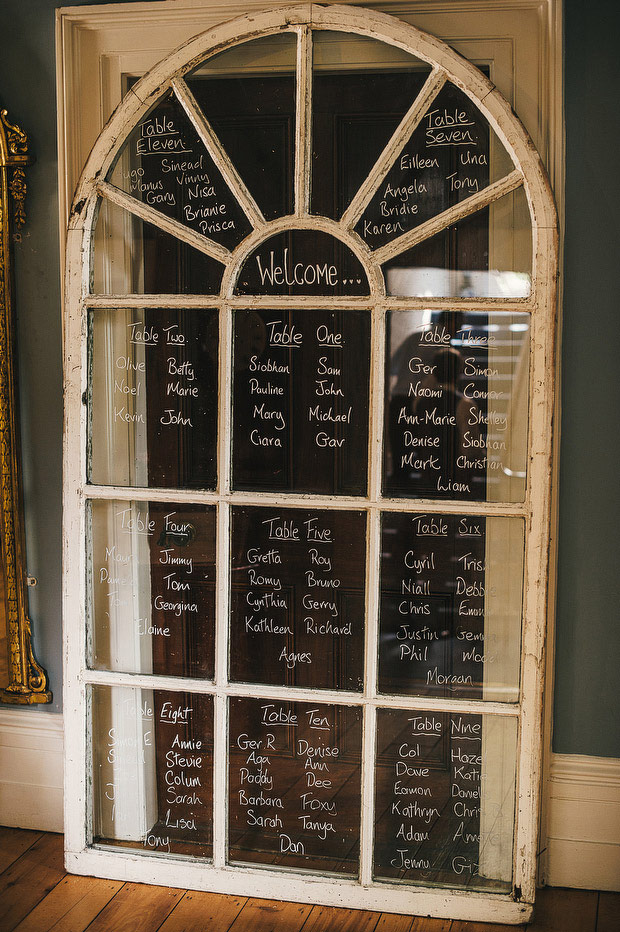 Table
Eleven
Sinead
Manus Vinny
Gary Nisa
Brianie
Prisca
Table
Seven
Eileen Una
Angela Tony
Bridie
Karen
Welcome...
Table Two
Olive Betty
Noel Marie
Kevin John
Table One
Siobhan Sam
Pauline John
Mary Michael
Ciara Gav
Table Three
Ger Simon
Naomi Connor
Ann-Marie Shelley
Denise Siobhan
Mark Christian
Liam
Table Four
Jimmy
Tom
Georgina
Elaine
Table Five
Gretta Roy
Romy Bruno
Cynthia Gerry
Kathleen Richard
Agnes
Table Six
Cyril
Niall
Chris
Justin
Phil
Morgan
Table Eight
Annie
Stevie
Colum
Sarah
Lisa
Tony
Table Ten
Ger R Denise
Aga Ann
Paddy Dee
Barbara Foxy
Sarah Tanya
Dan
Table Nine
Col
Dave
Eamon
Kathryn
Adam
Jenny